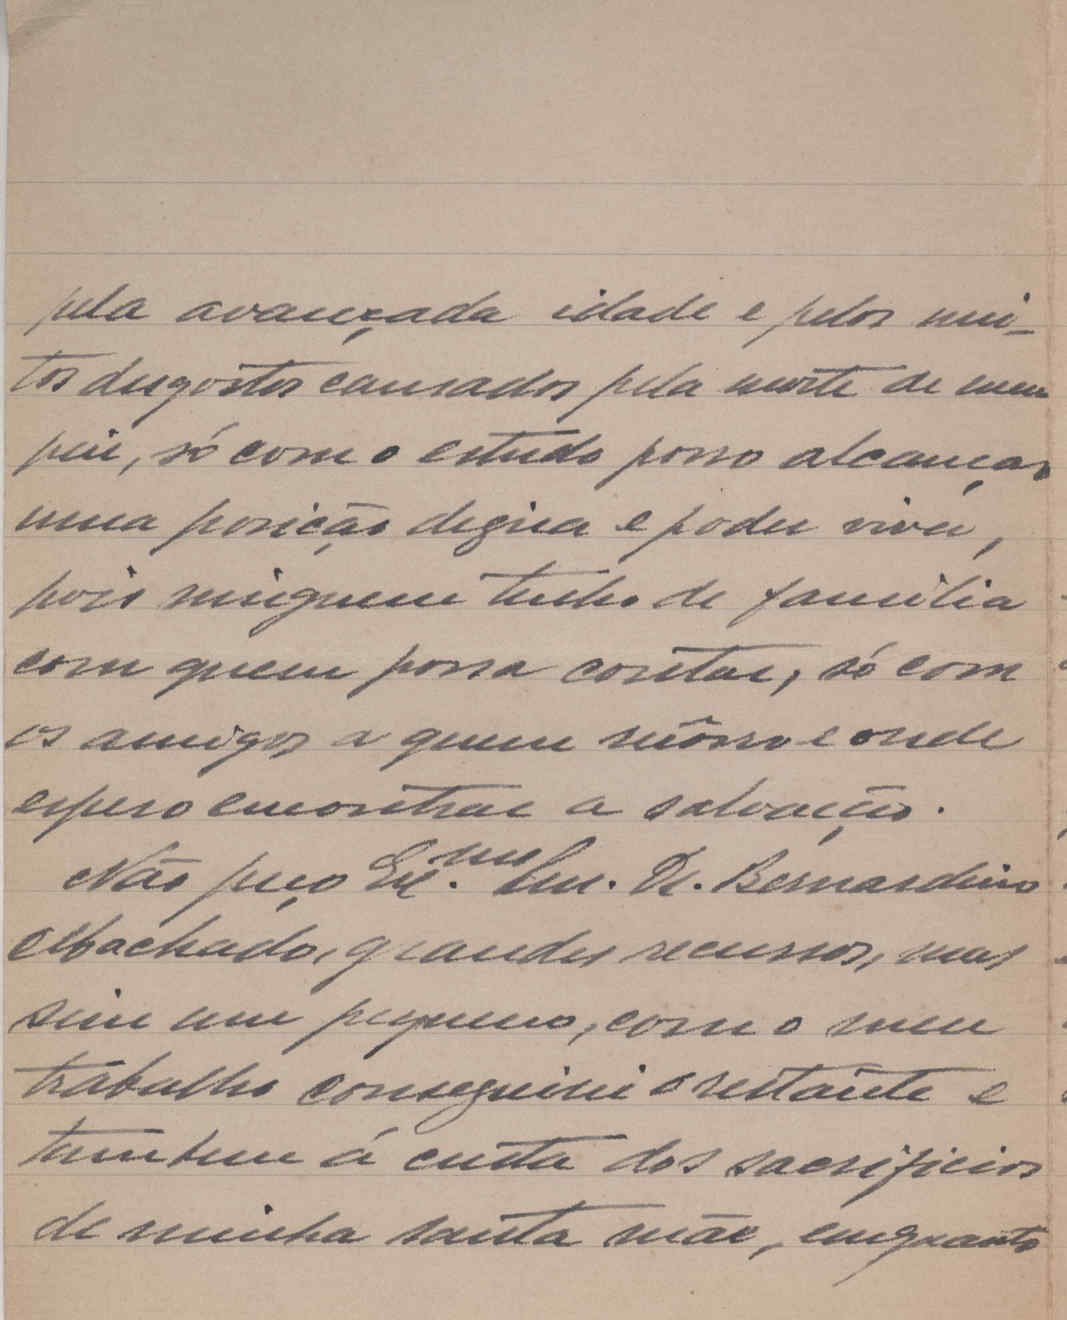 pela avançada idade e pelos mui-
tos desgostos causados pela morte de meu
pai, só com o estudo posso alcançar
uma posição digna e poder viver,
pois ninguem tenho de familia
com quem possa contar, só com
os amigos a quem e onde
espero encontrar a salvação.
Não peço Ex.mo Snr. Dr. Bernardino
Machado, grandes recursos, mas
sim um pequeno, com o meu
trabalho conseguirei o restante e
tambem á custa dos sacrificios
de minha santa mãe, emquanto